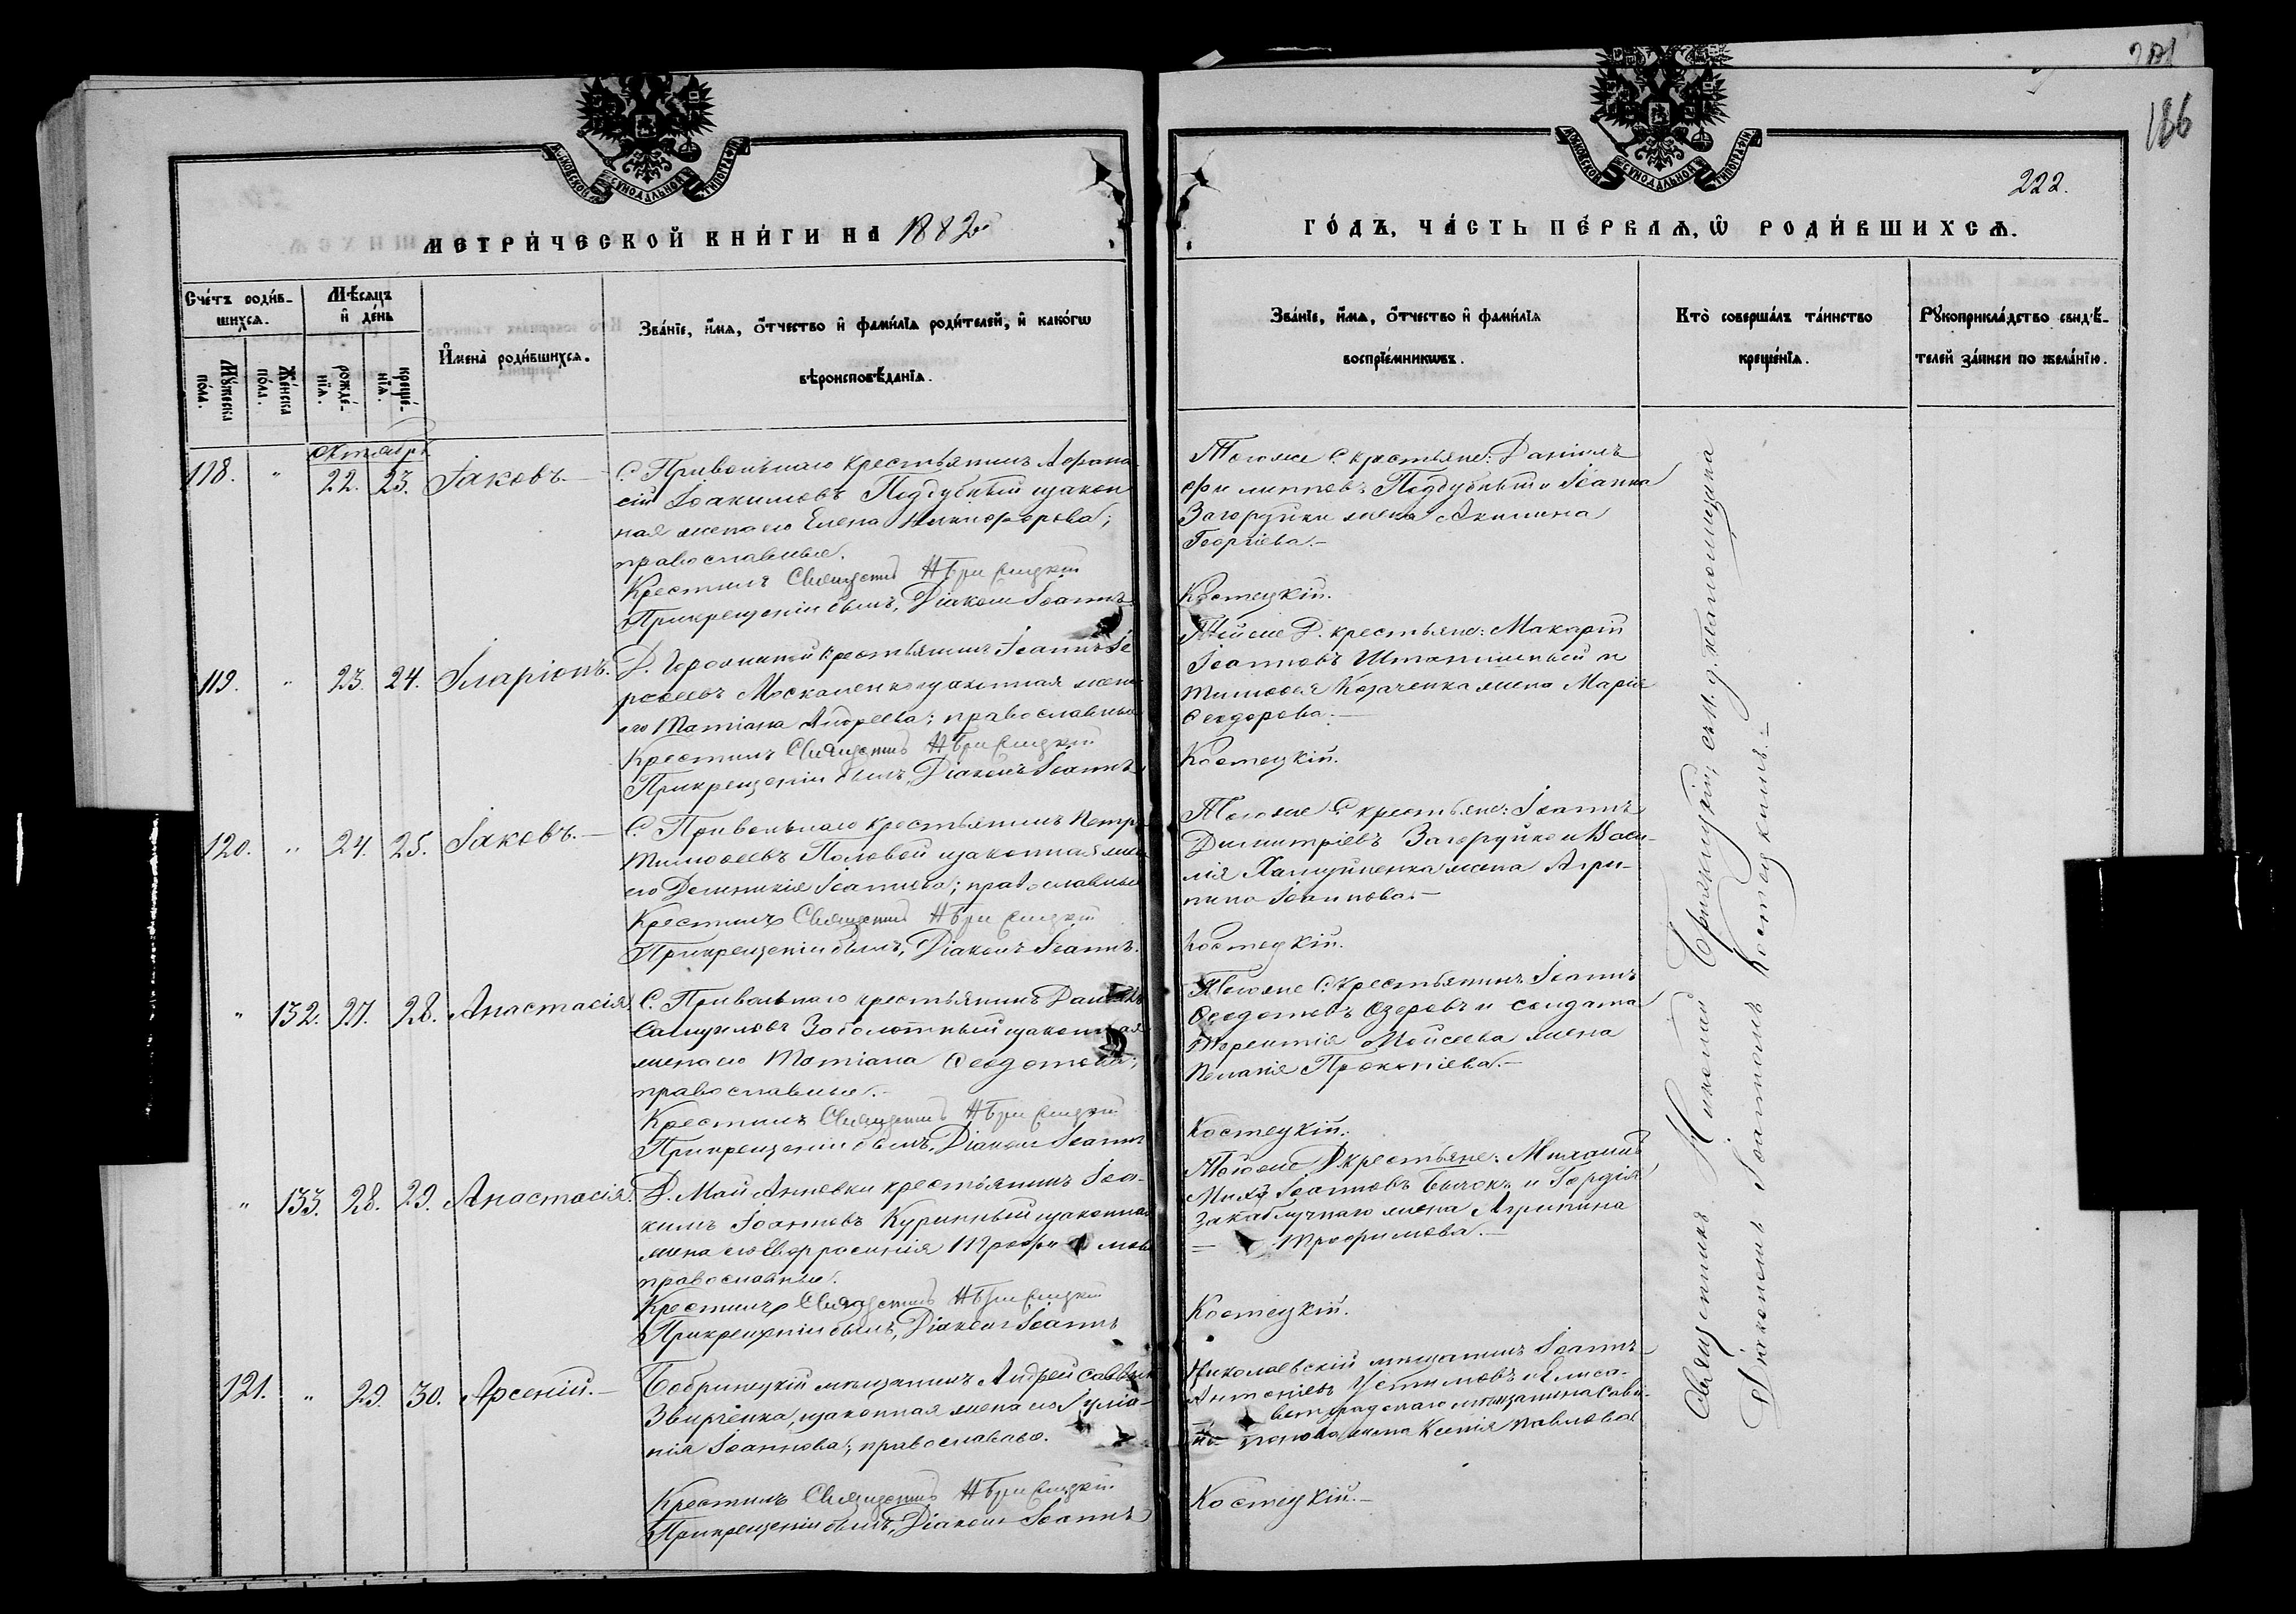 186
222.
МЕТРИ́ЧЕСКОЙ КНИ́ГИ НА 1882й
ГО́ДЪ, ЧА́СТЬ ПЕ́РВАѦ, Ѡ҆ РОДИ́ВШИХСѦ.
Сче́тъ роди́в-
шихсѧ.
Мѣ́сѧцъ
и҆ де́нь
Мꙋ́жеска
по́ла.
Же́нска
по́ла.
рожде́-
нїѧ.
креще́-
нїѧ.
И҆мена̀ роди́вшихсѧ.
Зва́нїе, и҆́мѧ, ѻ҆́тчество и҆ фами́лїѧ роди́телей, и҆ како́гѡ
вѣроисповѣ́данїѧ.
Зва́нїе, и҆́мѧ, ѻ҆́тчество и҆ фами́лїѧ
воспрїе́мникѡвъ.
Кто̀ соверша́лъ та́инство
креще́нїѧ.
Рꙋкоприкла́дство свидѣ́-
телей за́писи по жела́нїю.
Октябрь
118. " 22. 23. Іаковъ.—
С. Привольнаго крестьянинъ Афана-
сій Іоакимовъ Поддубный и закон
ная жена его Елена Никифорова;
православные.
Крестилъ Священникъ Н Бришцкій
При крещеніи былъ, Діаконъ Іоаннъ
Тогоже С. крестьяне: Даніилъ
Филипповъ Поддубный и Іоанна
Загоруйки жена Акилина
Георгіева.—
Костецкій.
119. " 23. 24. Иларіонъ.
Д. крестьянинъ Іоаннъ Іе
реѳеевъ Москаленко и законная жена
его Татіана Андреева; православные
Крестилъ Священникъ Н Бришцкій
При крещеніи былъ, Діаконъ Іоаннъ
Тойже Д. крестьяне: Макарій
Іоанновъ и
Тимоѳея Козаченка жена Марія
Ѳеодорова.—
Костецкій.
120. " 24. 25. Іаковъ.—
С. Привольнаго крестьянинъ Петръ
Тимоѳеевъ Половой и законная жена
его Доминикія Іоаннова; православные
Крестилъ Священникъ Н Бришцкій
При крещеніи былъ, Діаконъ Іоаннъ.
Тогоже С. крестьяне: Іоаннъ
Димитріевъ Загоруйко и Васи-
лія жена Агри-
пина Іоаннова.—
Костецкій.
" 132. 27. 28. Анастасія
С. Привольнаго крестьянинъ Даніилъ
Самуиловъ Заболотный и законная
жена его Татіана Ѳеодотова;
православные.—
Крестилъ Священникъ Н Бришцкій
При крещеніи былъ, Діаконъ Іоаннъ
Тогоже С. крестьянинъ Іоаннъ
Ѳеодотовъ Озеровъ и солдата
Терентія Моисеева жена
Пелагія Прокопіева.—
Костецкій.
" 133. 28. 29. Анастасія
Д. Май Анневки крестьянинъ Іоа-
кимъ Іоанновъ Куринный и законная
жена его Евфросинія Трофимова
православные.
Крестилъ Священникъ Н Бришцкій
При крещеніи былъ, Діаконъ Іоаннъ
Тойже Д. крестьяне: Михаилъ
Іоанновъ Бычокъ и Гордія
Закаблучнаго жена Агрипина
— Трофимова.—
Костецкій.
121. " 29. 30. Арсеній.—
Бобринецкій мѣщанинъ Андрей Саввинъ
Звирченко, и законная жена его Іуліа-
нія Іоаннова; православно.
Крестилъ Священникъ Н Бришцкій
При крещеніи былъ, Діаконъ Іоаннъ
Николаевскій мѣщанинъ Іоаннъ
Антоніевъ Устимовъ и Елиса-
ветградскаго мѣщанина Сави-
жена Ксенія Павлова
Костецкій.—
Священникъ Николай
Діакономъ Іоанномъ Костецкимъ.—